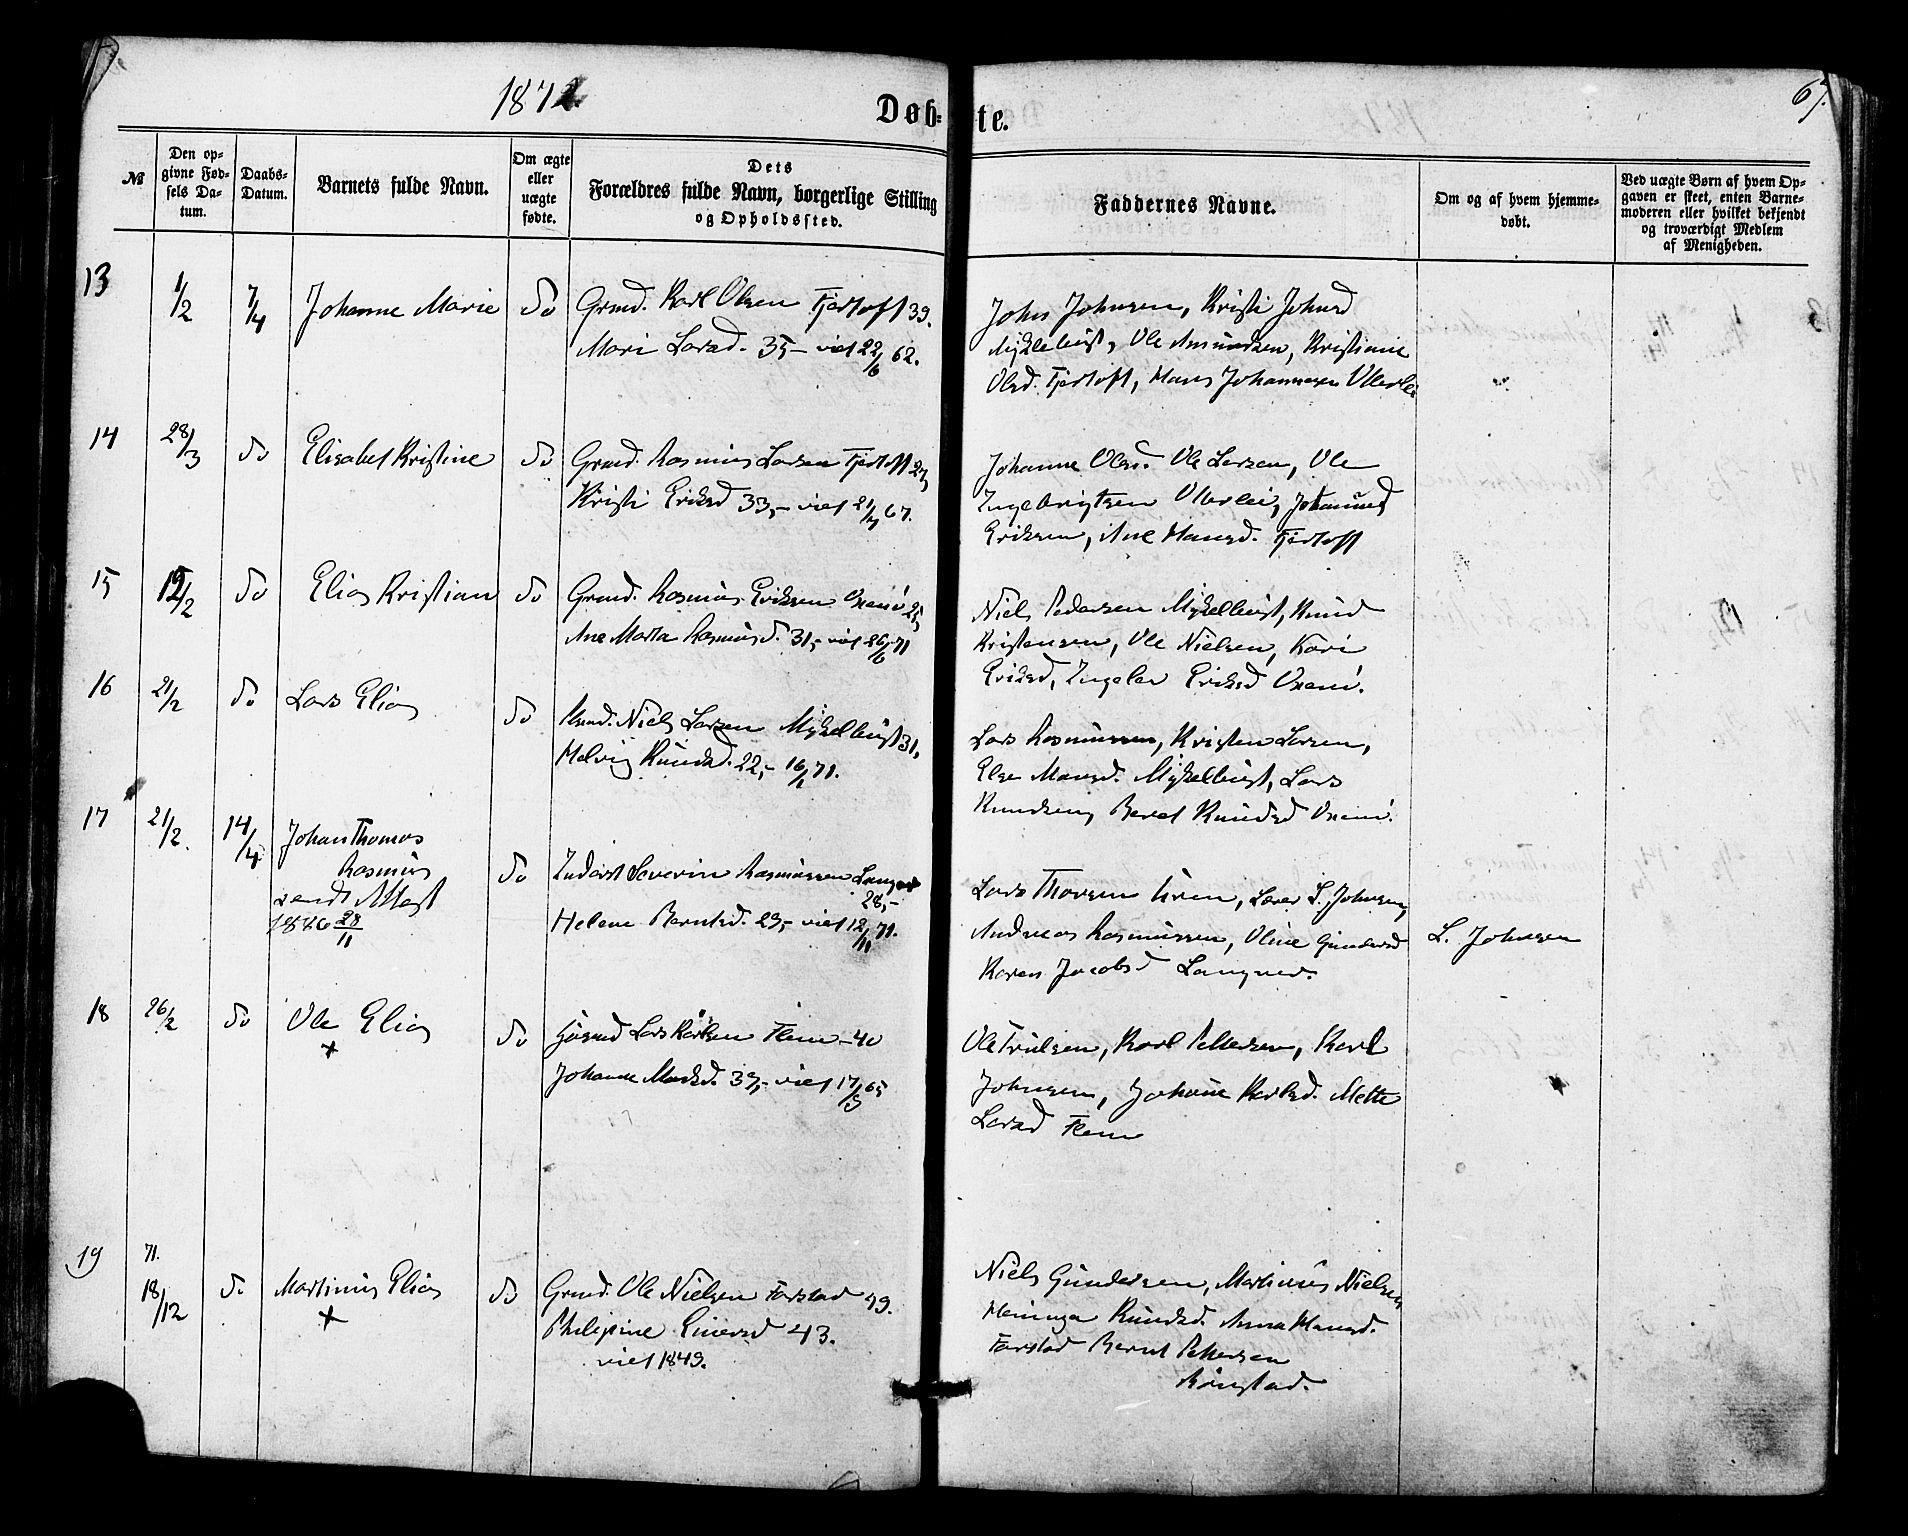 1872.
Døbte.
67.
№
Den opgivne Fødsels Datum.
Daabs-Datum.
Barnets fulde Navn.
Om ægte eller uægte fødte.
Dets
Forældres fulde Navn, borgerlige Stilling
og Opholdssted.
Faddernes Navne.
Om og af hvem hjemmedøbt.
Ved uægte Børn af hvem Opgaven er skeet, enten Barnemoderen eller hvilket bekjendt og troværdigt Medlem af Menigheden.
13 1/2 7/4 Johanne Marie Do Grmd. Karl Olsen Fjertoft 39.
Mari Larsd. 35,- viet 22/6 62.
John Johnsen, Kristi Johnsd
Myklebust, Ole Amundsen, Kristianie
Olsd. Fjertoft, Hans Johannesen Ullerlei
14 28/3 do Elisabet Kristine do Grmd. Rasmus Larsen Fjertoft 27,
Kristi Eriksd 33,- viet 21/7 67.
Johanne Olsd. Ole Larsen, Ole
Ingebrigtsen Ullerlei, Johannes
Eriksen, Ane Hansd. Fjertoft
15 12/2 do Elias Kristian do Grmd. Rasmus Eriksen Uxenö 25,
Ane Marta Rasmusd. 31,- viet 26/6 71
Niels Pedersen Mykelbust, Knud
Kristensen, Ole Nielsen, Kari
Eriksd, Ingeler Eriksd Uxenö.
16 21/2 do Lars Elias do Kmd. Niels Larsen Mykelbust 31,
Helvig Knudsd. 22,- 16/1 71.
Lars Rasmussen, Kristen Larsen,
Else Hansd. Mykelbust, Lars
Knudsen, Beret Knudsd Uxenö.
17 21/2. 14/4 Johan Thomas
Rasmus
sendt Attest
1886 28/11
do Inderst Severin Rasmussen Langnes
28,-
Helene Berntsd. 23,- viet 12/11 71.
Lars Thorsen Uren, Lærer L. Johnsen,
Andreas Rasmussen, Oline Gundersd
Karen Jacobsd Langnes.
L. Johnsen
18 26/2 do Ole Elias do Huusmd Lars Karlsen Flem - 40
+
Johanne Marksd. 39,- viet 17/5 65
Ole Trulsen, Karl Pettersen, Karl
Johnsen, Johanne Karlsd. Mette
Larsd Flem
19 71. 18/12 do Martinus Elias do Grmd. Ole Nielsen Farstad 49.
+
Philipine Einersd 43.
viet 1849.
Niels Gundersen, Martinus Nielsen
Heninga Knudsd. Anna Hansd.
Farstad Bernt Pettersen
Rönstad.